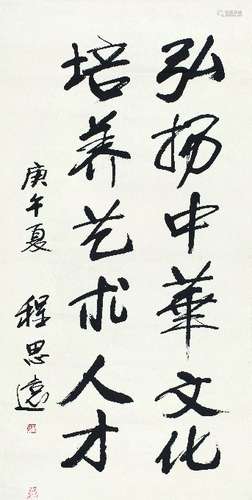 弘扬中華文化
培养艺术人才
庚午夏 程思遠